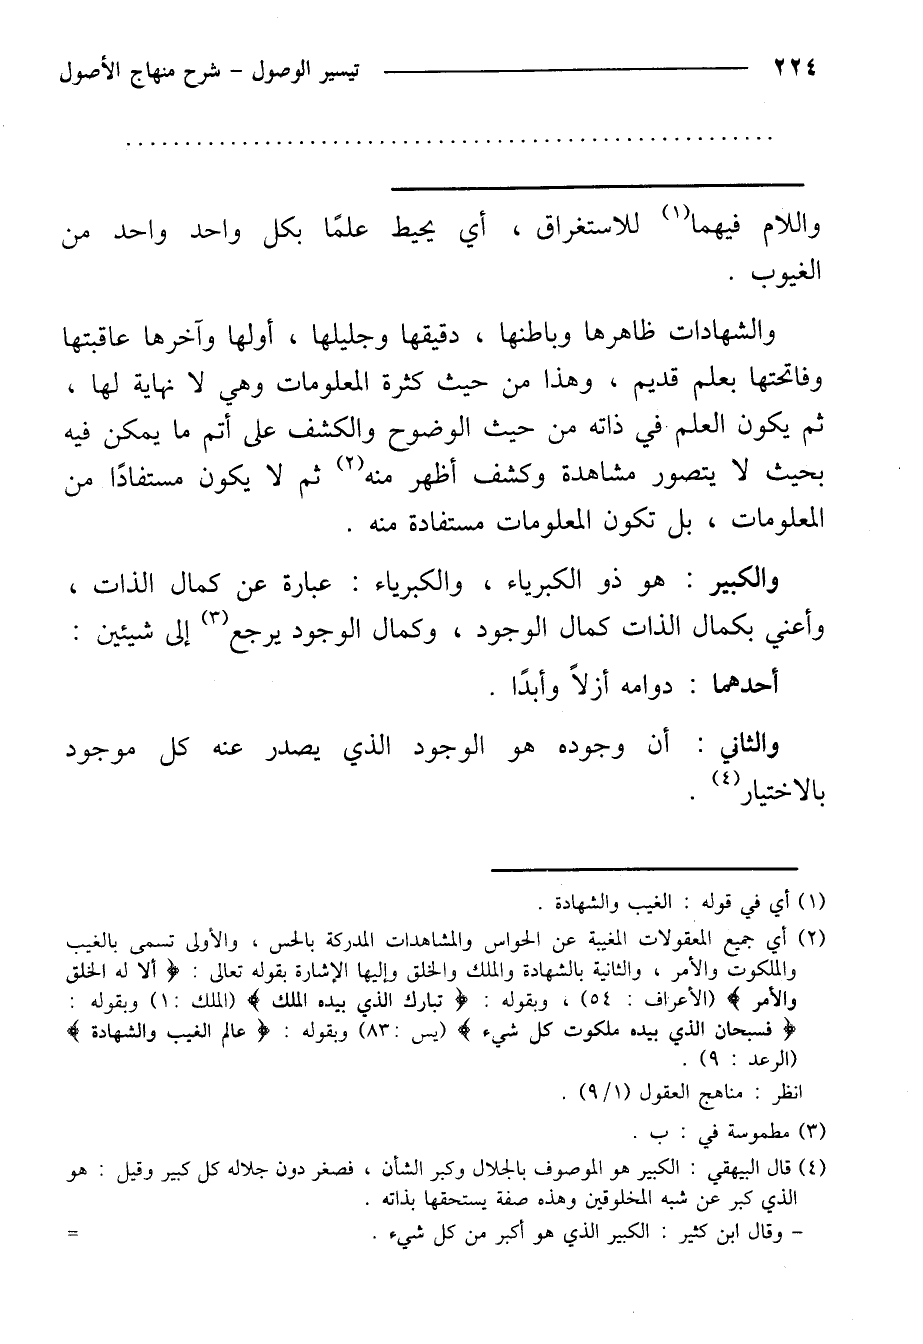 ٢٢٤ تيسير الوصول - شرح منهاج الأصول
واللام فيهما(١) للاستغراق ، أي يحيط علمًا بكل واحد واحد من
الغيوب .
والشهادات ظاهرها وباطنها ، دقيقها وجليلها ، أولها وآخرها عاقبتها
وفاتحتها بعلم قديم ، وهذا من حيث كثرة المعلومات وهي لا نهاية لها ،
ثم يكون العلم في ذاته من حيث الوضوح والكشف على أتم ما يمكن فيه
بحيث لا يتصور مشاهدة وكشف أظهر منه(٢) ثم لا يكون مستفادًا من
المعلومات ، بل تكون المعلومات مستفادة منه .
والكبير : هو ذو الكبرياء ، والكبرياء : عبارة عن كمال الذات ،
وأعني بكمال الذات كمال الوجود ، وكمال الوجود يرجع(٣) إلى شيئين :
أحدهما : دوامه أزلاً وأبدًا .
والثاني : أن وجوده هو الوجود الذي يصدر عنه كل موجود
بالاختيار(٤) .
(١) أي في قوله : الغيب والشهادة .
(٢) أي جميع المعقولات المغيبة عن الحواس والمشاهدات المدركة بالحس ، والأولى تسمى بالغيب
والملكوت والأمر ، والثانية بالشهادة والملك والخلق وإليها الإشارة بقوله تعالى : ﴿ ألا له الخلق
والأمر ﴾ (الأعراف : ٥٤) ، وبقوله : ﴿ تبارك الذي بيده الملك ﴾ (الملك :١) وبقوله :
﴿ فسبحان الذي بيده ملكوت كل شيء ﴾ (يس :٨٣) وبقوله : ﴿ عالم الغيب والشهادة ﴾
(الرعد : ٩) .
انظر : مناهج العقول (٩/١) .
(٣) مطموسة في : ب .
(٤) قال البيهقي : الكبير هو الموصوف بالجلال وكبر الشأن ، فصغر دون جلاله كل كبير وقيل : هو
الذي كبر عن شبه المخلوقين وهذه صفة يستحقها بذاته .
- وقال ابن كثير : الكبير الذي هو أكبر من كل شيء . =